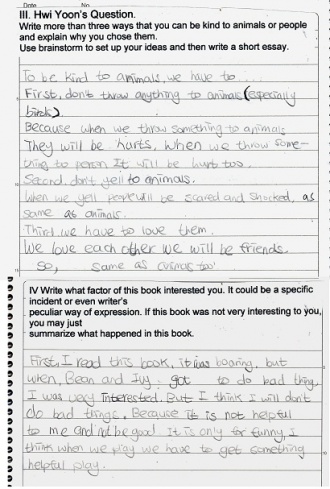 Date No
III. Hwi Yoon's Question.
Write more than three ways that you can be kind to animals or people
and explain why you chose them.
Use brainstorm to set up your ideas and then write a short essay.
To be kind to animals, we have to....
First, don't throw anything to animals (especially
birds)
Because when we throw something to animals
They will be hurts, when we throw some-
thing to person It will be hurt too.
Second, don't yell to animals.
When we yell people will be scared and shocked, as
same as animals.
Third we have to love them.
We love each other we will be friends.
So, same as animals too
IV Write what factor of this book interested you. It could be a specific
incident or even writer's
peculiar way of expression. If this book was not very interesting to you,
you may just
summarize what happened in this book.
First, I read this book, it was boaring, but
when, Bean and Ivy got to do bad thing
I was very Interested. But I think I will don't
do bad things. Because it is not helpful
to me and not be good It is only for funny, I
think when we play we have to get something
helpful play.